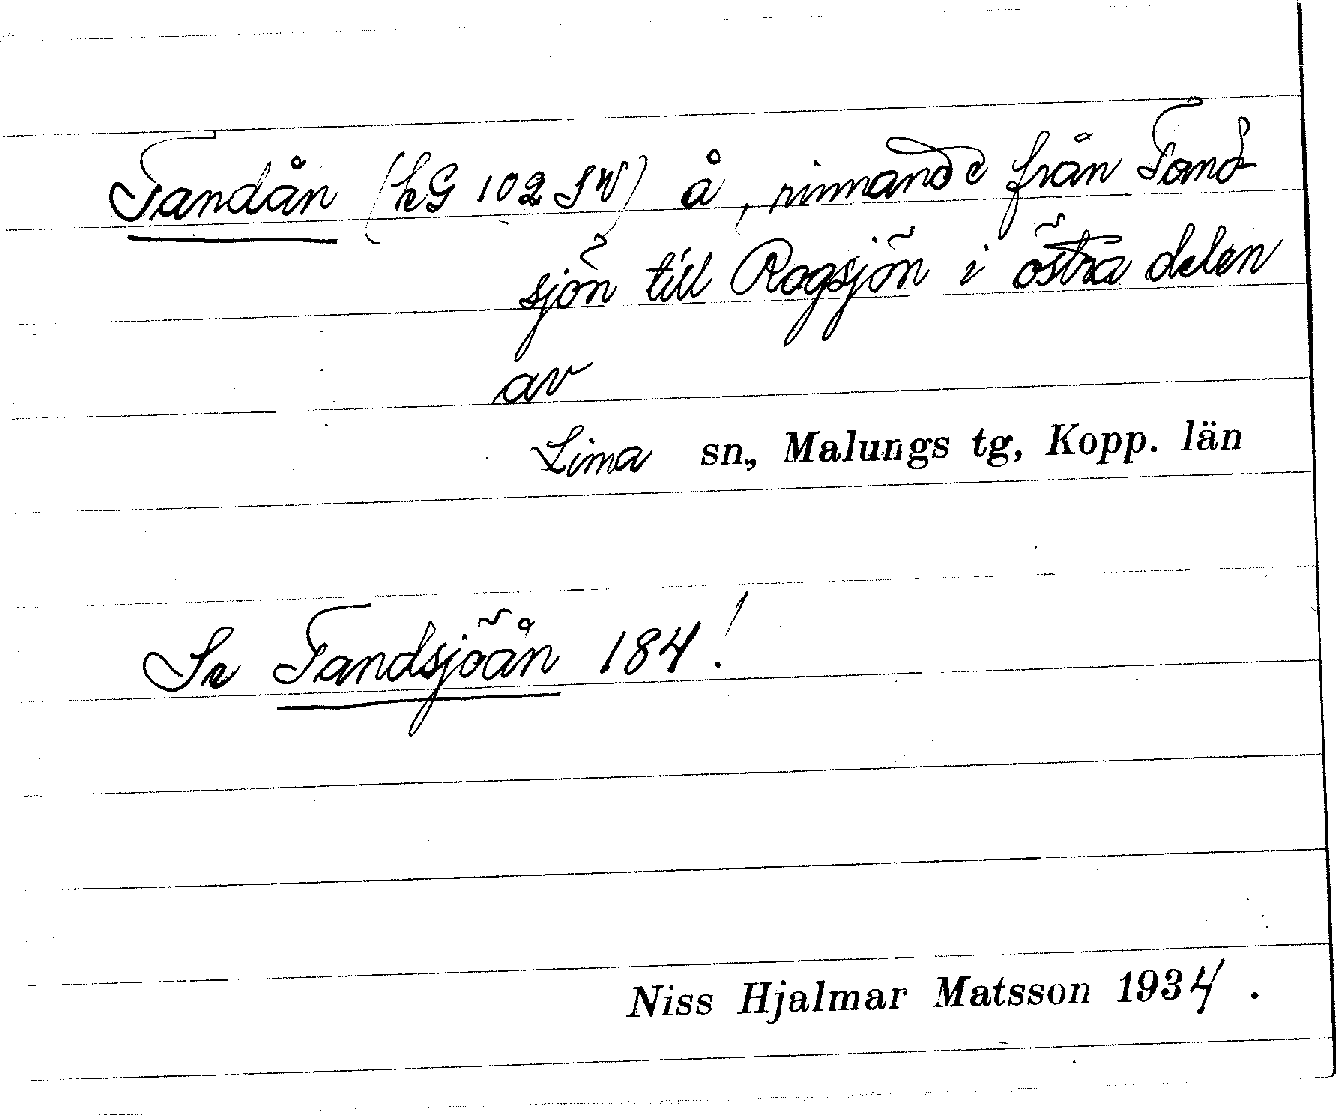 Tandån (hG 102 SW) å, rinnande från Tand-
sjön till Rogsjön i östra delen
av
Lima sn., Malungs tg, Kopp. län
Se Tandsjöån 184!
Niss Hjalmar Matsson 1934.